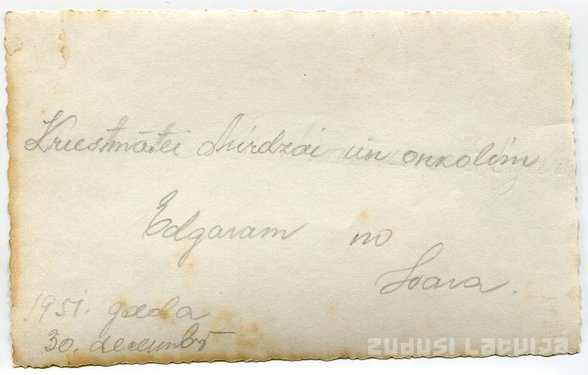 Krustmātei Mirdzai un onkolim
Edgaram no
Ivara.
1951. gada
30. decembŗ
zudusi latvija